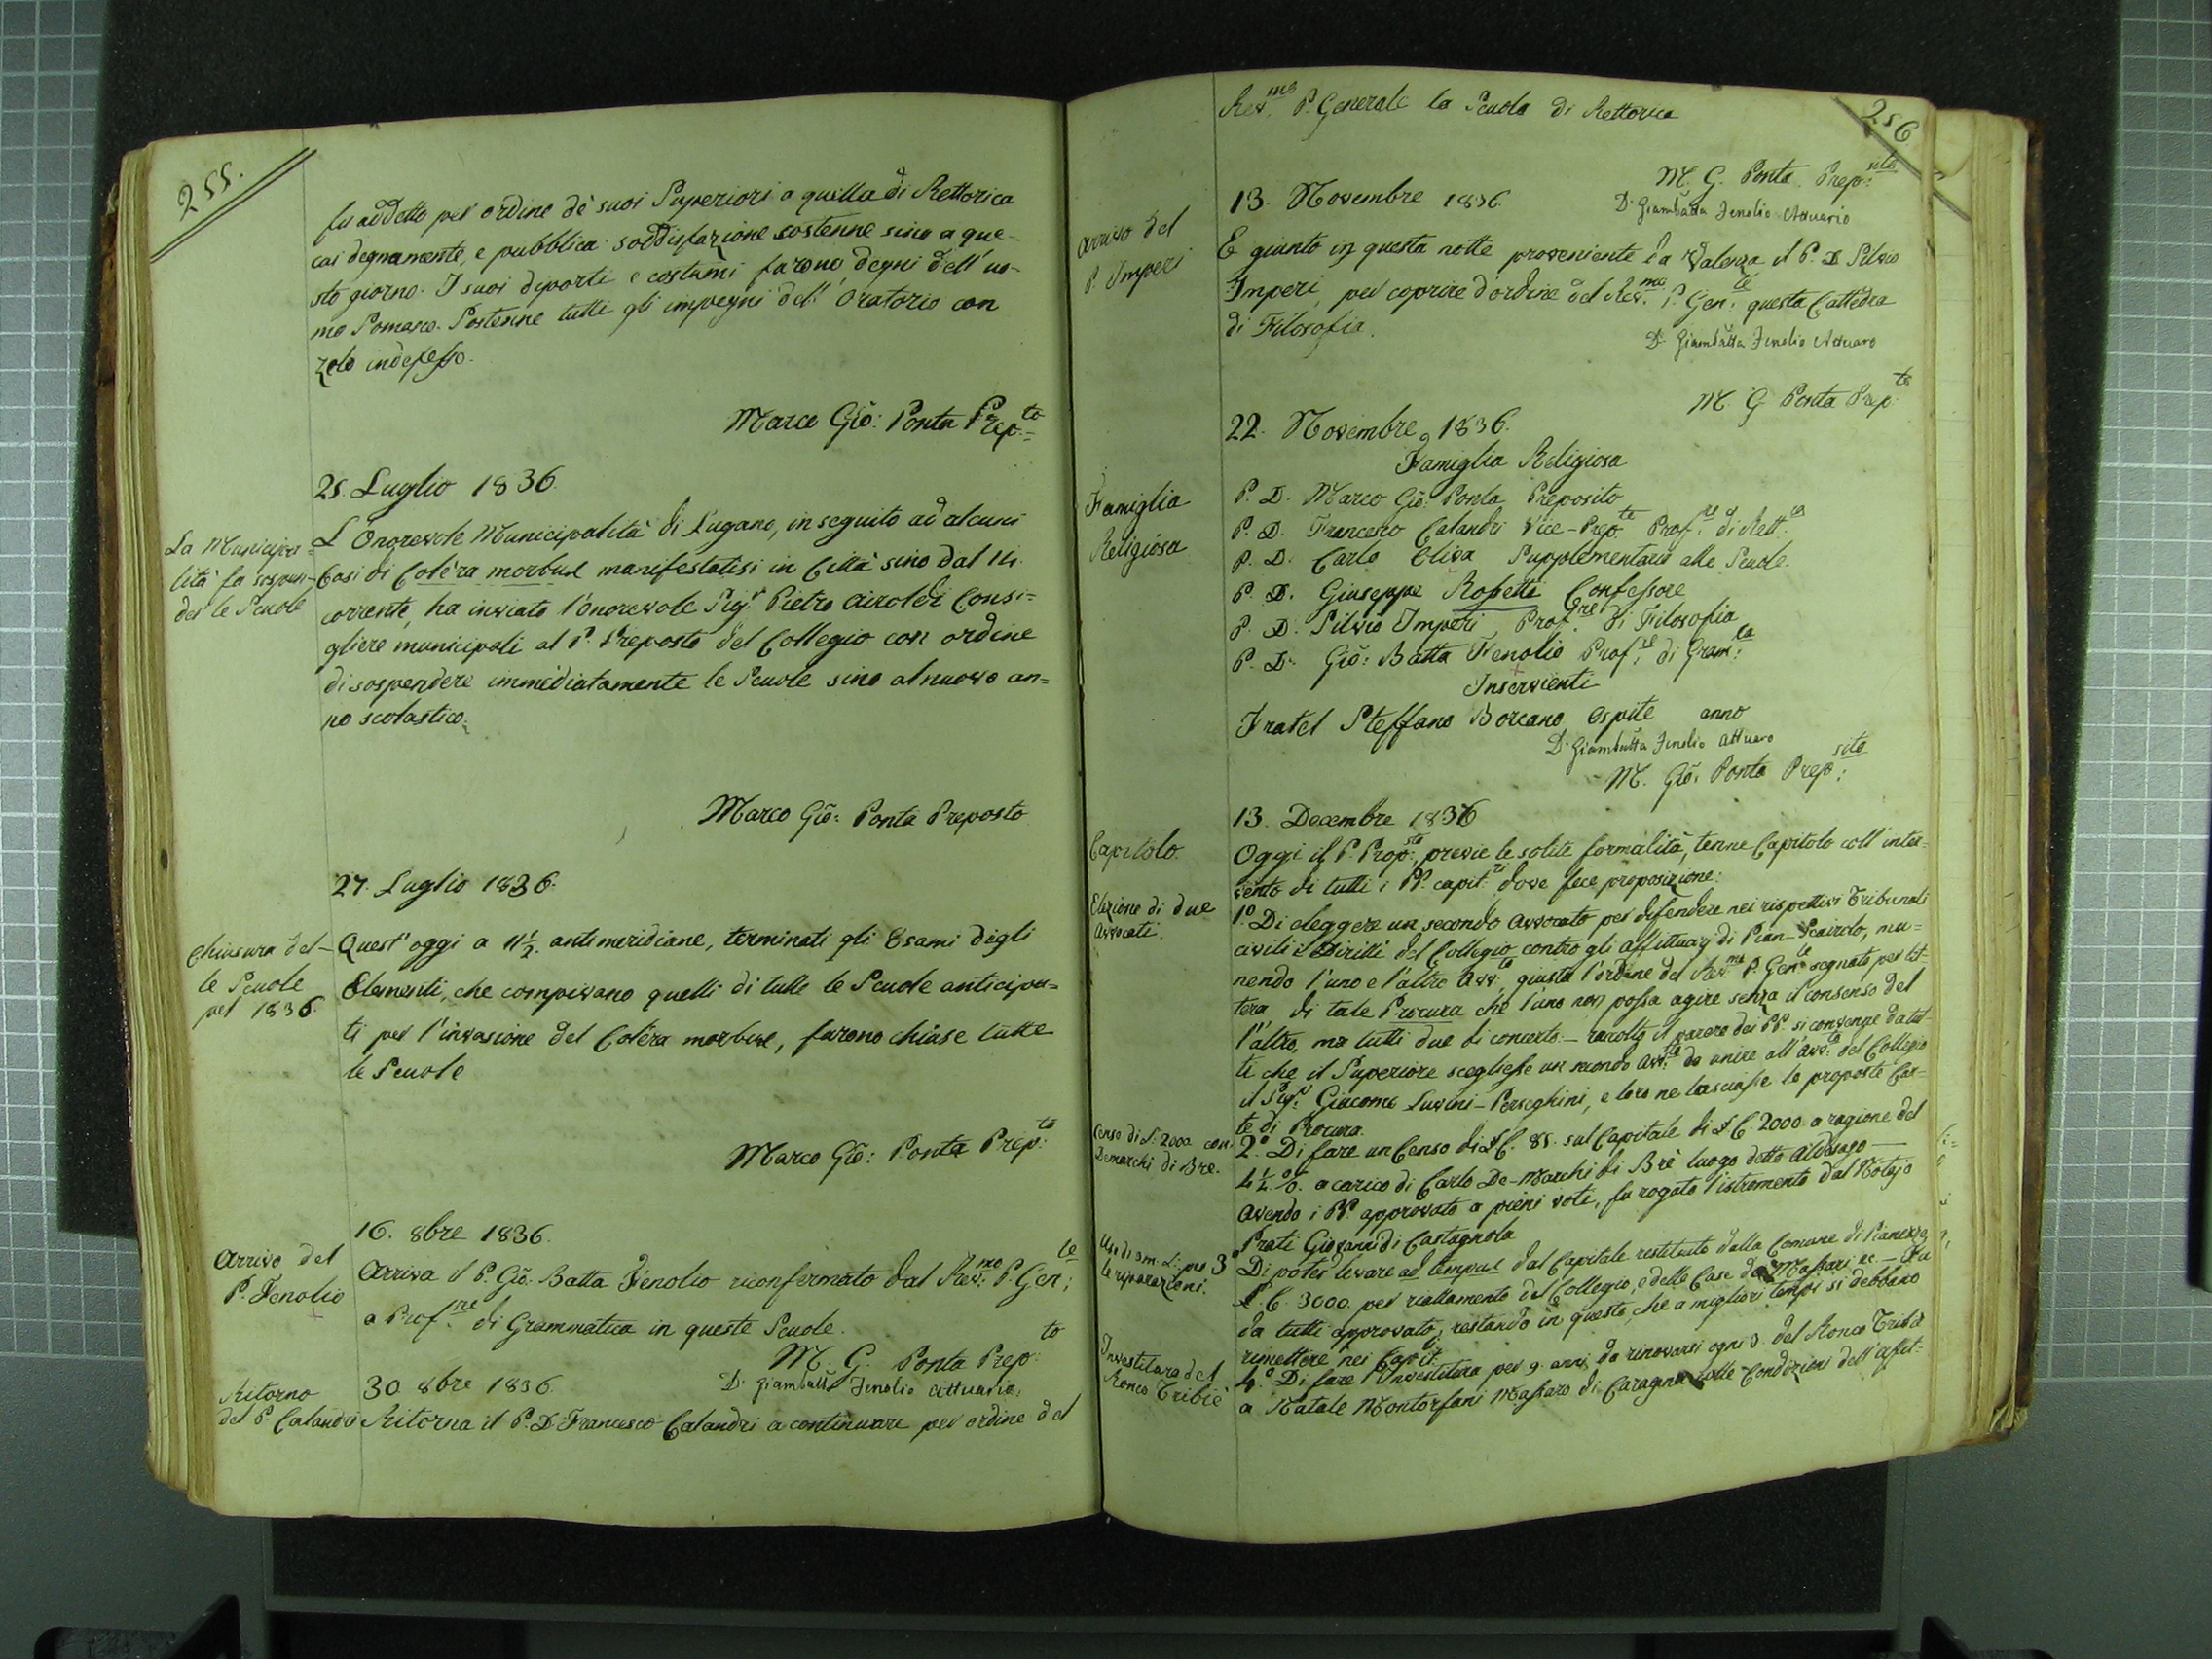 255.
fu addetto per ordine dè suoi Superiori a quella di Rettorica
cui degnamente, e pubblica soddisfazione sostenne sino a que-
sto giorno. I suoi diporti e costumi furono degni dell' uo-
mo Somasco. Sostenne tutti gli impegni dell' Oratorio con
zelo indefesso.
Marco Gio: Ponta Prep.to
25. Luglio 1836.
La Municipa=
lità fa sospen-
der le Scuole
L'Onorevole Municipalità di Lugano, in seguito ad alcuni
Casi di Colèra morbus manifestatisi in Città sino dal 14.
corrente, ha inviato l'onorevole Sig.r Pietro Airoldi Consi=
gliere municipali al P. Preposto del Collegio con ordine
di sospendere immediatamente le Scuole sino al nuovo an=
no scolastico.
Marco Gio: Ponta Preposto
27. Luglio 1836.
Chiusura del-
le Scuole
pel 1836.
Quest' oggi a 11 1/2. antimeridiane, terminati gli Esami degli
Elementi, che compivano quelli di tutte le Scuole anticipa=
ti per l'invasione del Colèra morbus, furono chiuse tutte
le Scuole
Marco Gio: Ponta Prep.to
16. 8bre 1836.
Arrivo del
P. Fenolio
Arriva il P. Gio: Batta Fenolio riconfermato dal Rev.mo P. Gen.le;
a Prof.re di Grammatica in queste Scuole.
M. G. Ponta Prep.to
D. Giambatta Fenolio Attuario.
30. 8bre 1836.
Ritorno
del P. Calandri
Ritorna il P. D. Francesco Calandri a continuare per ordine del
256
Rev.mo P. Generale la Scuola di Rettorica
M. G. Ponta Prep.sito
D. Giambatta Fenolio Attuario
13. Novembre 1836.
Arrivo del
P. Imperi
E giunto in questa notte proveniente da Valenza il P. D. Silvio
Imperi, per coprire d'ordine del Rev.mo P. Gen.le questa Cattedra
di Filosofia.
D. Giambatta Fenolio Attuaro
M. G Ponta Prep.to
22. Novembre 1836.
Famiglia Religiosa
Famiglia
Religiosa
P. D. Marco Gio: Ponta Preposito
P. D. Francesco Calandri Vice-Prep.to Prof.re di Rett.ca
P. D. Carlo Oliva Supplementario alle Scuole.
P. D. Giuseppe Rossetti Confessore
P. D. Silvio Imperi Prof.re di Filosofia
P. D. Gio: Batta Fenolio Prof.re di Gram.ca
Inservienti
Fratel Steffano Borcano Ospite anno
D. Giambatta Fenolio Attuaro
M. Gio: Ponta Prep.sito:
13. Decembre 1836
Capitolo.
Oggi il P. Prop.sto, previe le solite formalità, tenne Capitolo coll' inter-
vento di tutti i PP. capit.ri dove fece proposizione:
Elezione di due
Avvocati.
1.º Di eleggere un secondo Avvocato per difendere nei rispettivi Tribunali
civili i Diritti del Collegio contro gli affittuarj di Pian-Scairolo, mu=
nendo l'uno e l'altro Avv.to, giusta l'ordine del Rev.mo P. Gen.le segnato per let-
tera di tale Procura che l'uno non possa agire senza il consenso del
l'altro, ma tutti due di concerto. — raccolto il parere dei PP. si convenne da tut-
ti che il Superiore scegliesse un secondo Avv.to da unire all' Avv.to del Collegio
il Sig.r Giacomo Luvini-Perseghini, e loro ne lasciasse le proposte Car-
te di Procura.
Censo di L: 2000 con
Demarchi di Bre.
2.º Di fare un Censo di £ C. 85. sul Capitale di £ C. 2000 a ragione del
4 1/4 %. a carico di Carlo De-Marchi di Brè luogo detto Aldesago —
Avendo i PP. approvato a pieni voti, fu rogato l'istromento dal Notajo
Prati Giovanni di Castagnola
Uso di 3m. L: per
le riparazioni.
3º Di poter levare ad tempus dal Capitale restituito dalla Comune di Pianezzo
£. C. 3000. per riattamento del Collegio, e delle Case da Massari ec — Fu
da tutti approvato, restando in questo, che a migliori tempi si debbano
rimettere nei Capit.li
Investitura del
Ronco Tribiè
4.º Di fare l'Investitura per 9. anni da rinovarsi ogni 3. del Ronco Tribiè
a Natale Montorfani Massaro di Caragna colle Condizioni dell' affit-